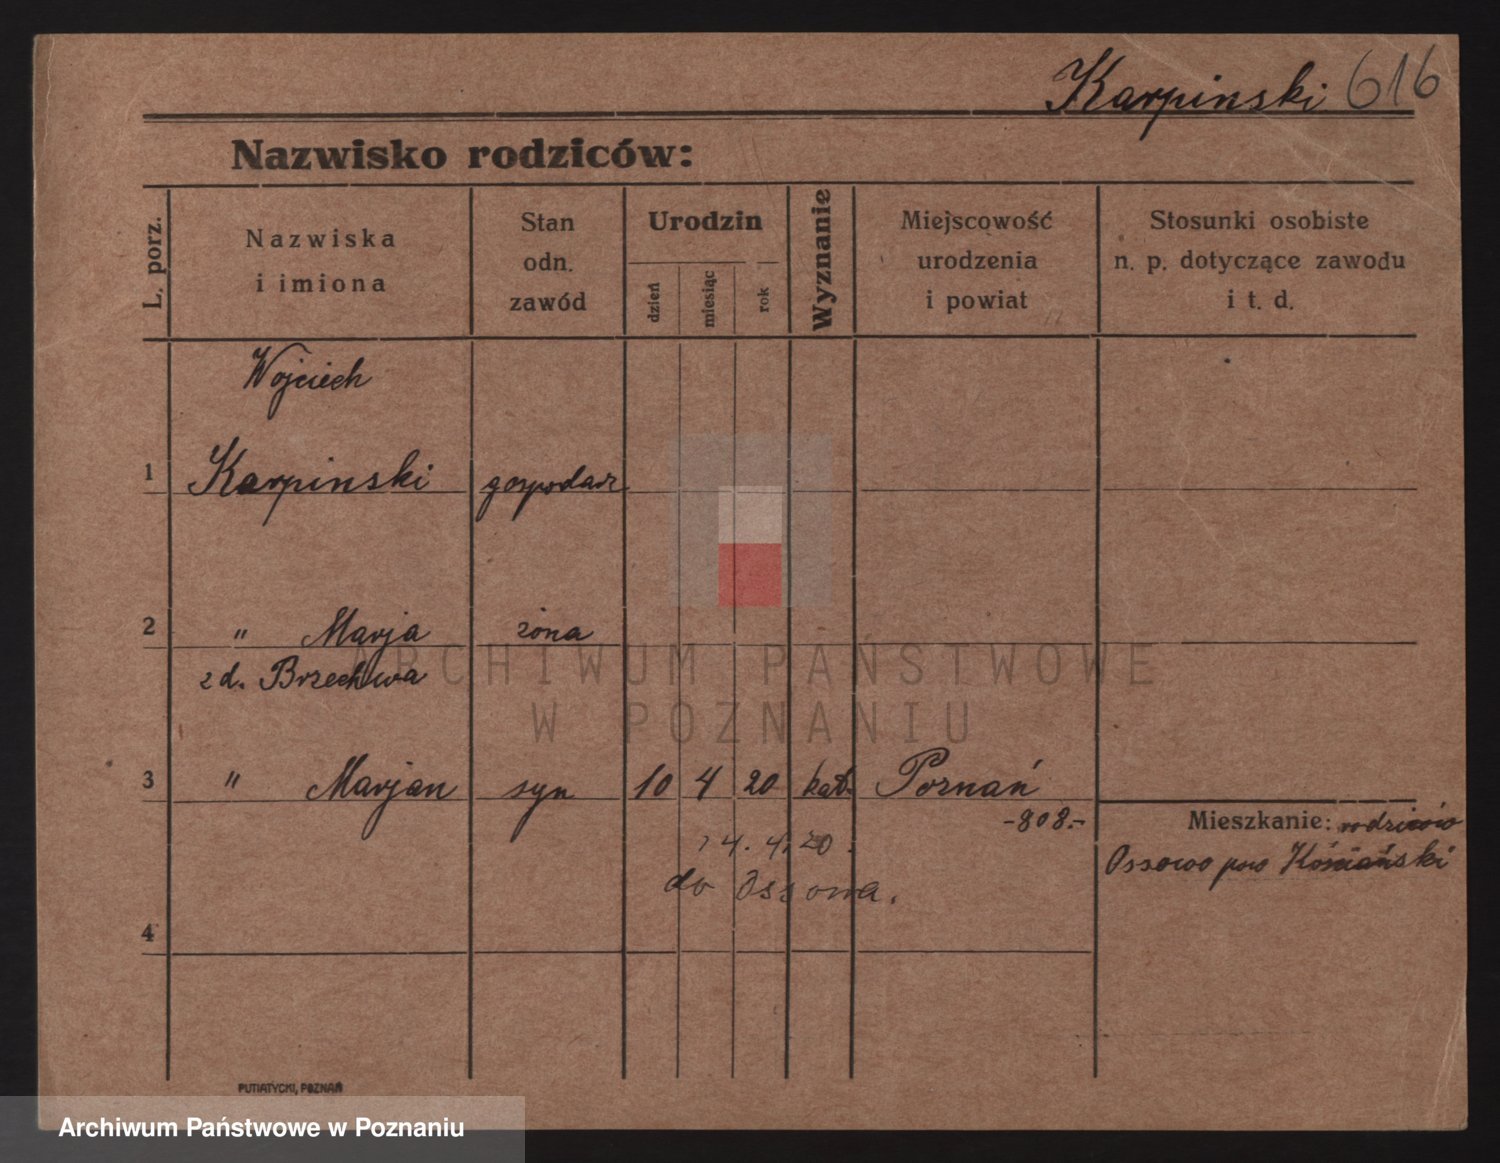 Karpinski 616
Nazwisko rodziców:
L. porz.
Nazwiska
i imiona
Stan
odn.
zawód
Urodzin
dzień
miesiąc
rok
Wyznanie
Miejscowość
urodzenia
i powiat
Stosunki osobiste
n. p. dotyczące zawodu
i t. d.
Wojciech
1 Karpinski gospodarz
2 " Marja żona
z d. Brzechwa
ARCHIWUM PAŃSTWOWE
W POZNANIU
3 " Marjan syn 10 4 20 kat. Poznań
-808.-
Mieszkanie: rodziców
Ossowo pow Kościański
14. 4. 20.
do Ossowa.
4
PUTIATYCKI, POZNAŃ
Archiwum Państwowe w Poznaniu